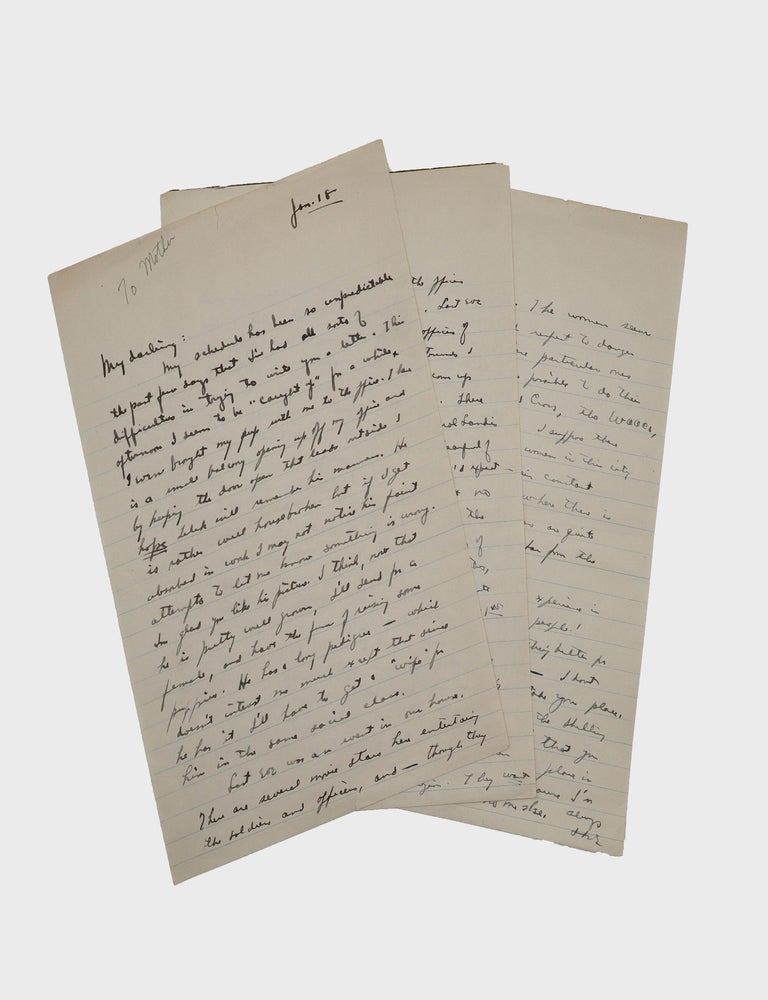 Jan. 18
To Mother
My darling:
My schedule has been so unpredictable
the past few days that I've had all sorts of
difficulties in trying to write you a letter. This
afternoon I seem to be "caught up" for a while,
I even brought my pup with me to the office. There
is a small balcony opening up off my office and
by keeping the door open that leads outside I
hope Telek will remember his manners. He
is rather well housebroken but if I get
absorbed in work I may not notice his faint
attempts to let me know something is wrong.
I'm glad you like his picture. I think, now that
he is pretty well grown, I'll send for a
female, and have the fun of raising some
puppies. He has a long pedigree — which
doesn't interest me much except that since
he has it I'll have to get a "wife" for
him in the same social class.
Last eve was an event in our house.
There are several movie stars here entertaining
the soldiers and officers, and — though they
the offices
. Last eve
offices of
friends I
com up
. There
Carol Landis
careful of
I expect —
no
the
of
. The women seem
respect to danger
particular ones
possible to do their
Cross, the WAACS,
I suppose there
women in this city
in contact
where there is
are quite
from the
experience in
people!
better for
— I don't
take your place,
the
that you
gin. They want place is
cause I'm
me else, always